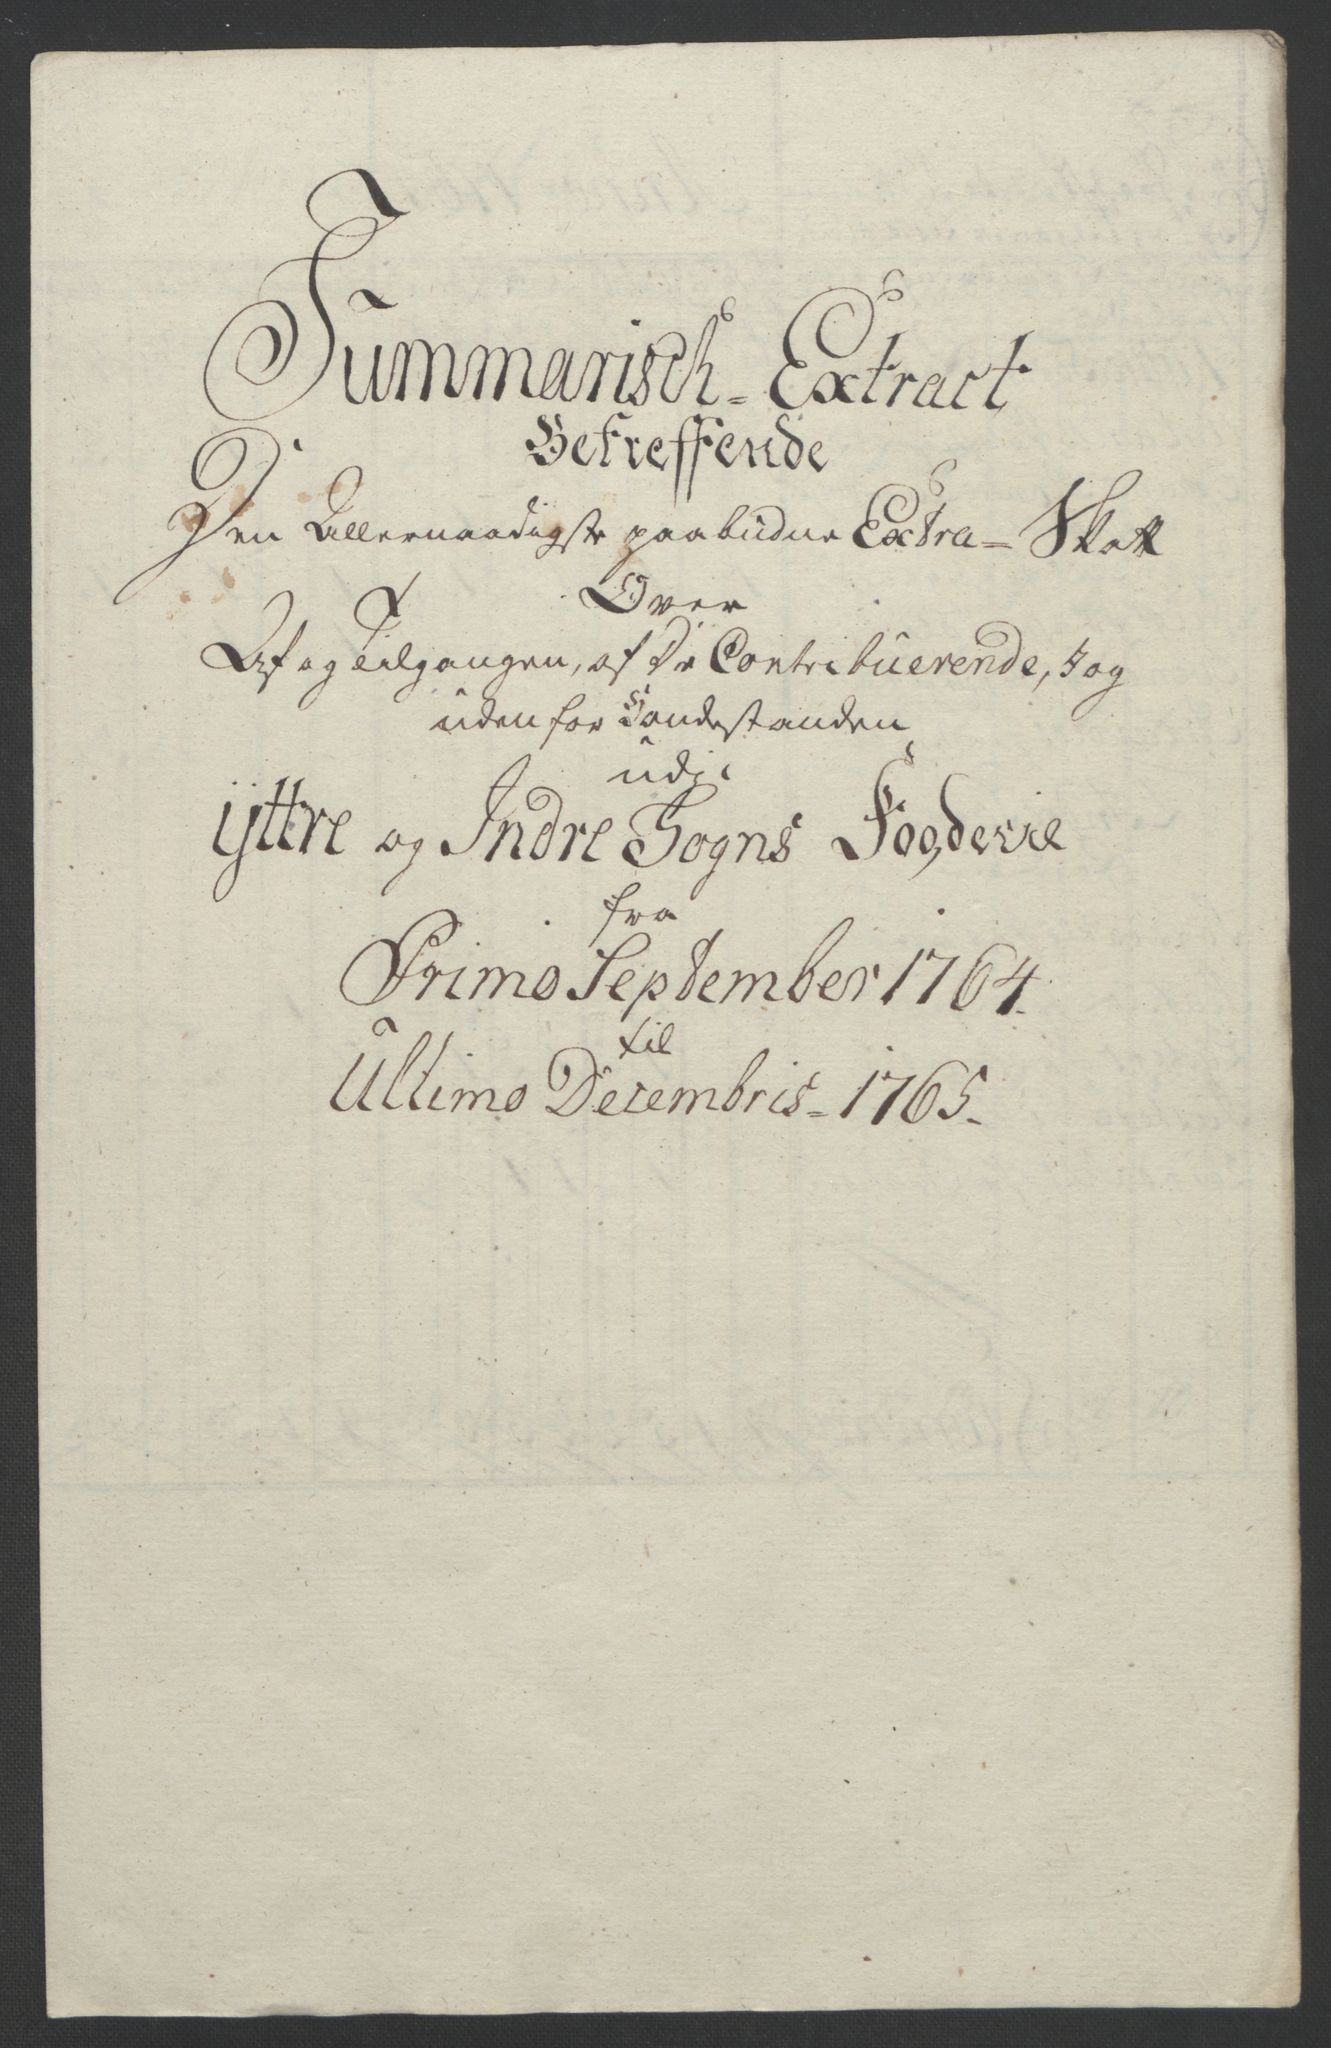 Summarisch- Extract
Betreffende
Den Allernaadigste paabudne Extra- Skatt
Over
Af og Tilgangen, af De Contribuerende, i og
uden for Bondestanden
udi
Yttre og Indre Sogns Fogderie
fra
Primo September 1764.
til
Ultimo Decembris- 1765.